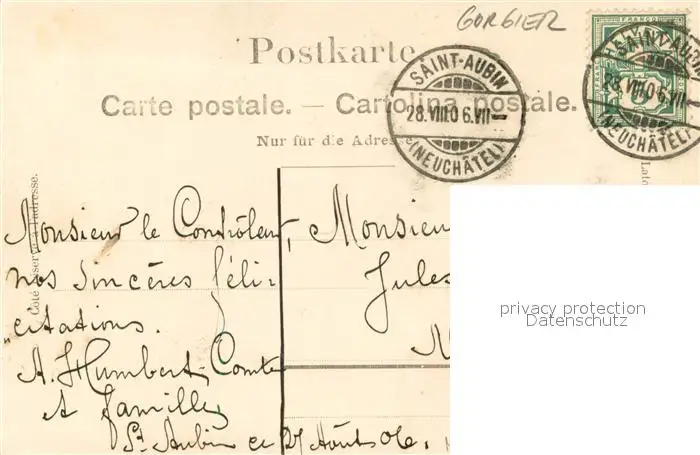 GORGIER
Postkarte
Carte postale. — Cartolina postale.
Nur für die Adresse
SAINT-AUBIN
28.VIII.0 6.VII—
(NEUCHÂTEL)
FRANCO
SAINT-AUBIN
28.VIII.0 6.VII—
(NEUCHÂTEL)
Côté réservé à l'adresse.
Lato
Monsieur le Contrôleur,
nos sincères féli-
citations.
A. Humbert-Comte
et famille
St. Aubin ce 27 Août 06.
Monsieu
Jules
privacy protection
Datenschutz